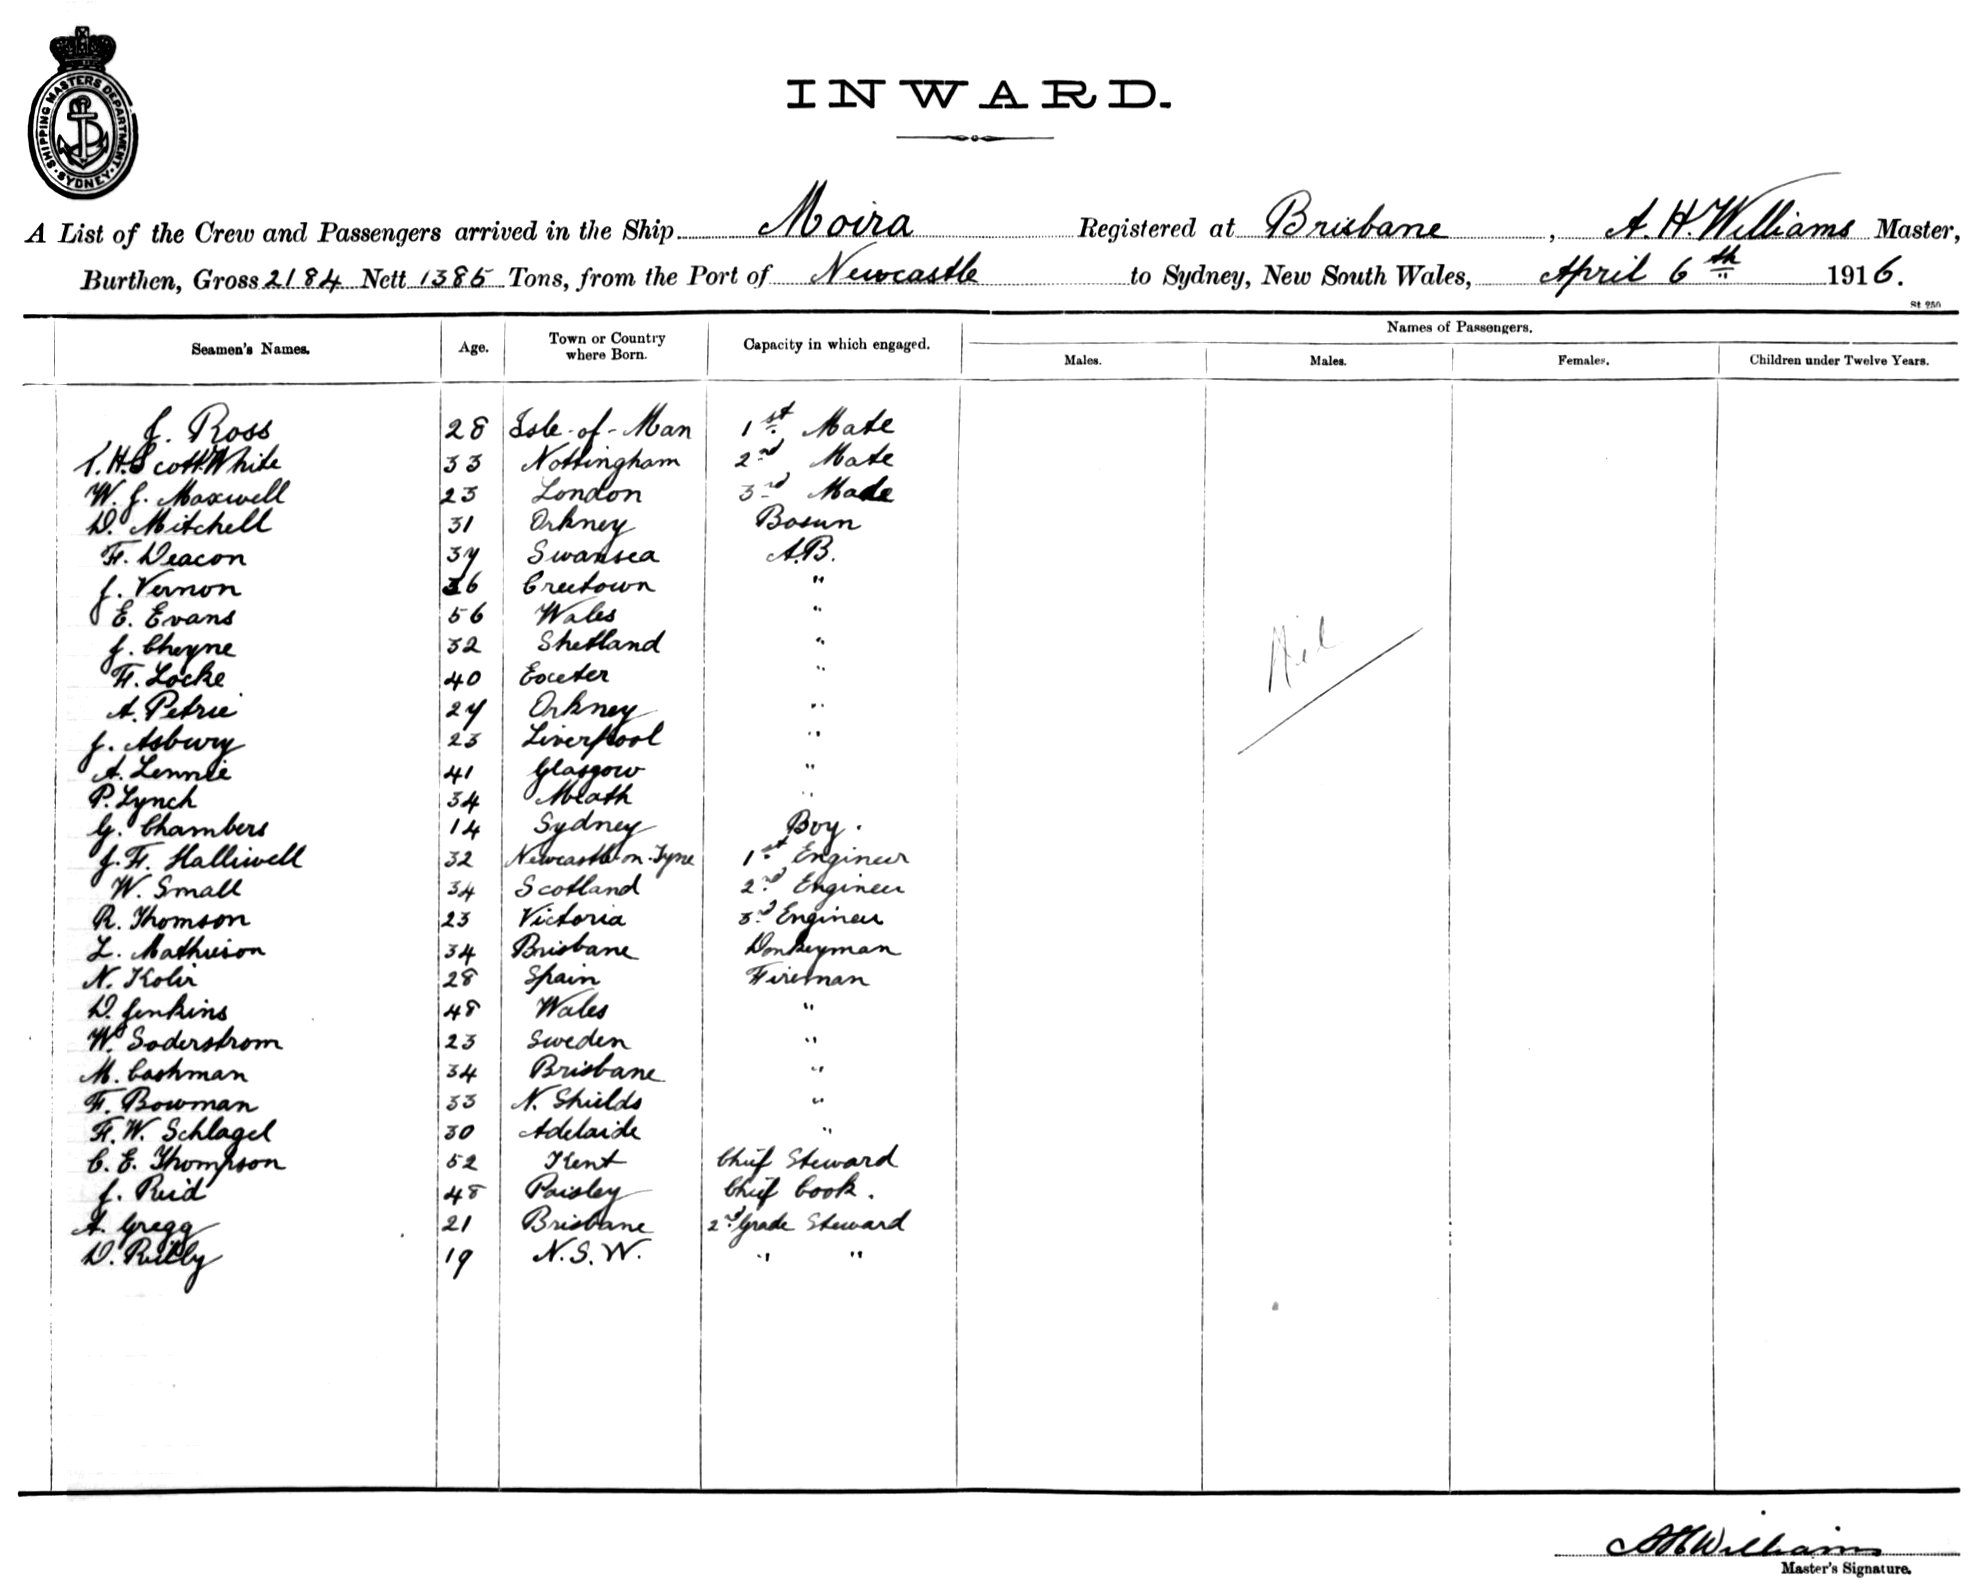 SHIPPING MASTERS DEPARTMENT · SYDNEY ·
INWARD.
A List of the Crew and Passengers arrived in the Ship Moira Registered at Brisbane, A. H. Williams Master,
Burthen, Gross 2184 Nett 1385 Tons, from the Port of Newcastle to Sydney, New South Wales, April 6th 1916.
St 250
Names of Passengers.
Seamen's Names. Age. Town or Country where Born. Capacity in which engaged. Males. Males. Females. Children under Twelve Years.
J. Ross 28 Isle-of-Man 1st Mate
T. H. Scott White 33 Nottingham 2nd Mate
W. J. Maxwell 23 London 3rd Mate
D. Mitchell 31 Orkney Bosun
F. Deacon 37 Swansea A.B.
J. Vernon 36 Creetown "
E. Evans 56 Wales "
J. Cheyne 32 Shetland "
F. Locke 40 Exeter "
A. Petrie 27 Orkney "
J. Asbury 23 Liverpool "
A. Lennie 41 Glasgow "
P. Lynch 34 Meath "
G. Chambers 14 Sydney Boy.
J. F. Halliwell 32 Newcastle-on-Tyne 1st Engineer
W. Small 34 Scotland 2nd Engineer
R. Thomson 23 Victoria 3rd Engineer
L. Mathieson 34 Brisbane Donkeyman
N. Kolir 28 Spain Fireman
D. Jenkins 48 Wales "
W. Soderstrom 23 Sweden "
M. Cashman 34 Brisbane "
F. Bowman 33 N. Shields "
F. W. Schlagel 30 Adelaide "
C. E. Thompson 52 Kent Chief Steward
J. Reid 48 Paisley Chief Cook.
A. Gregg 21 Brisbane 2nd Grade Steward
D. Reilly 19 N.S.W. " "
Nil
A H Williams
Master's Signature.